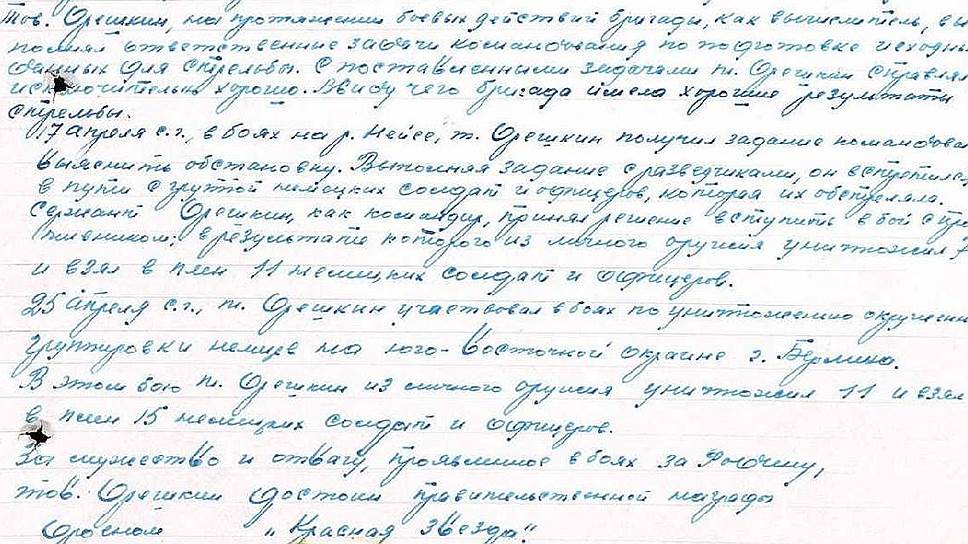 Тов. Орешкин, на протяжении боевых действий бригады, как вычислитель, вы
полнял ответственные задачи командования по подготовке исходны
данных для стрельбы. С поставленными задачами т. Орешкин справлял
исключительно хорошо. Ввиду чего бригада имела хорошие результаты
стрельбы.
17 апреля с.г., в боях на р. Нейсе, т. Орешкин получил задание командова
выяснить обстановку. Выполняя задание с разведчиками, он встретился
в пути с группой немецких солдат и офицеров, которая их обстреляла.
Сержант Орешкин, как командир, принял решение вступить в бой с про
тивником; в результате которого из личного оружия уничтожил 7
и взял в плен 11 немецких солдат и офицеров.
25 апреля с.г., т. Орешкин участвовал в боях по уничтожению окруженн
группировки немцев на юго-восточной окраине г. Берлина.
В этом бою т. Орешкин из личного оружия уничтожил 11 и взял
в плен 15 немецких солдат и офицеров.
За мужество и отвагу, проявленное в боях за Родину,
тов. Орешкин достоин правительственной награды
Орденом „Красная звезда"